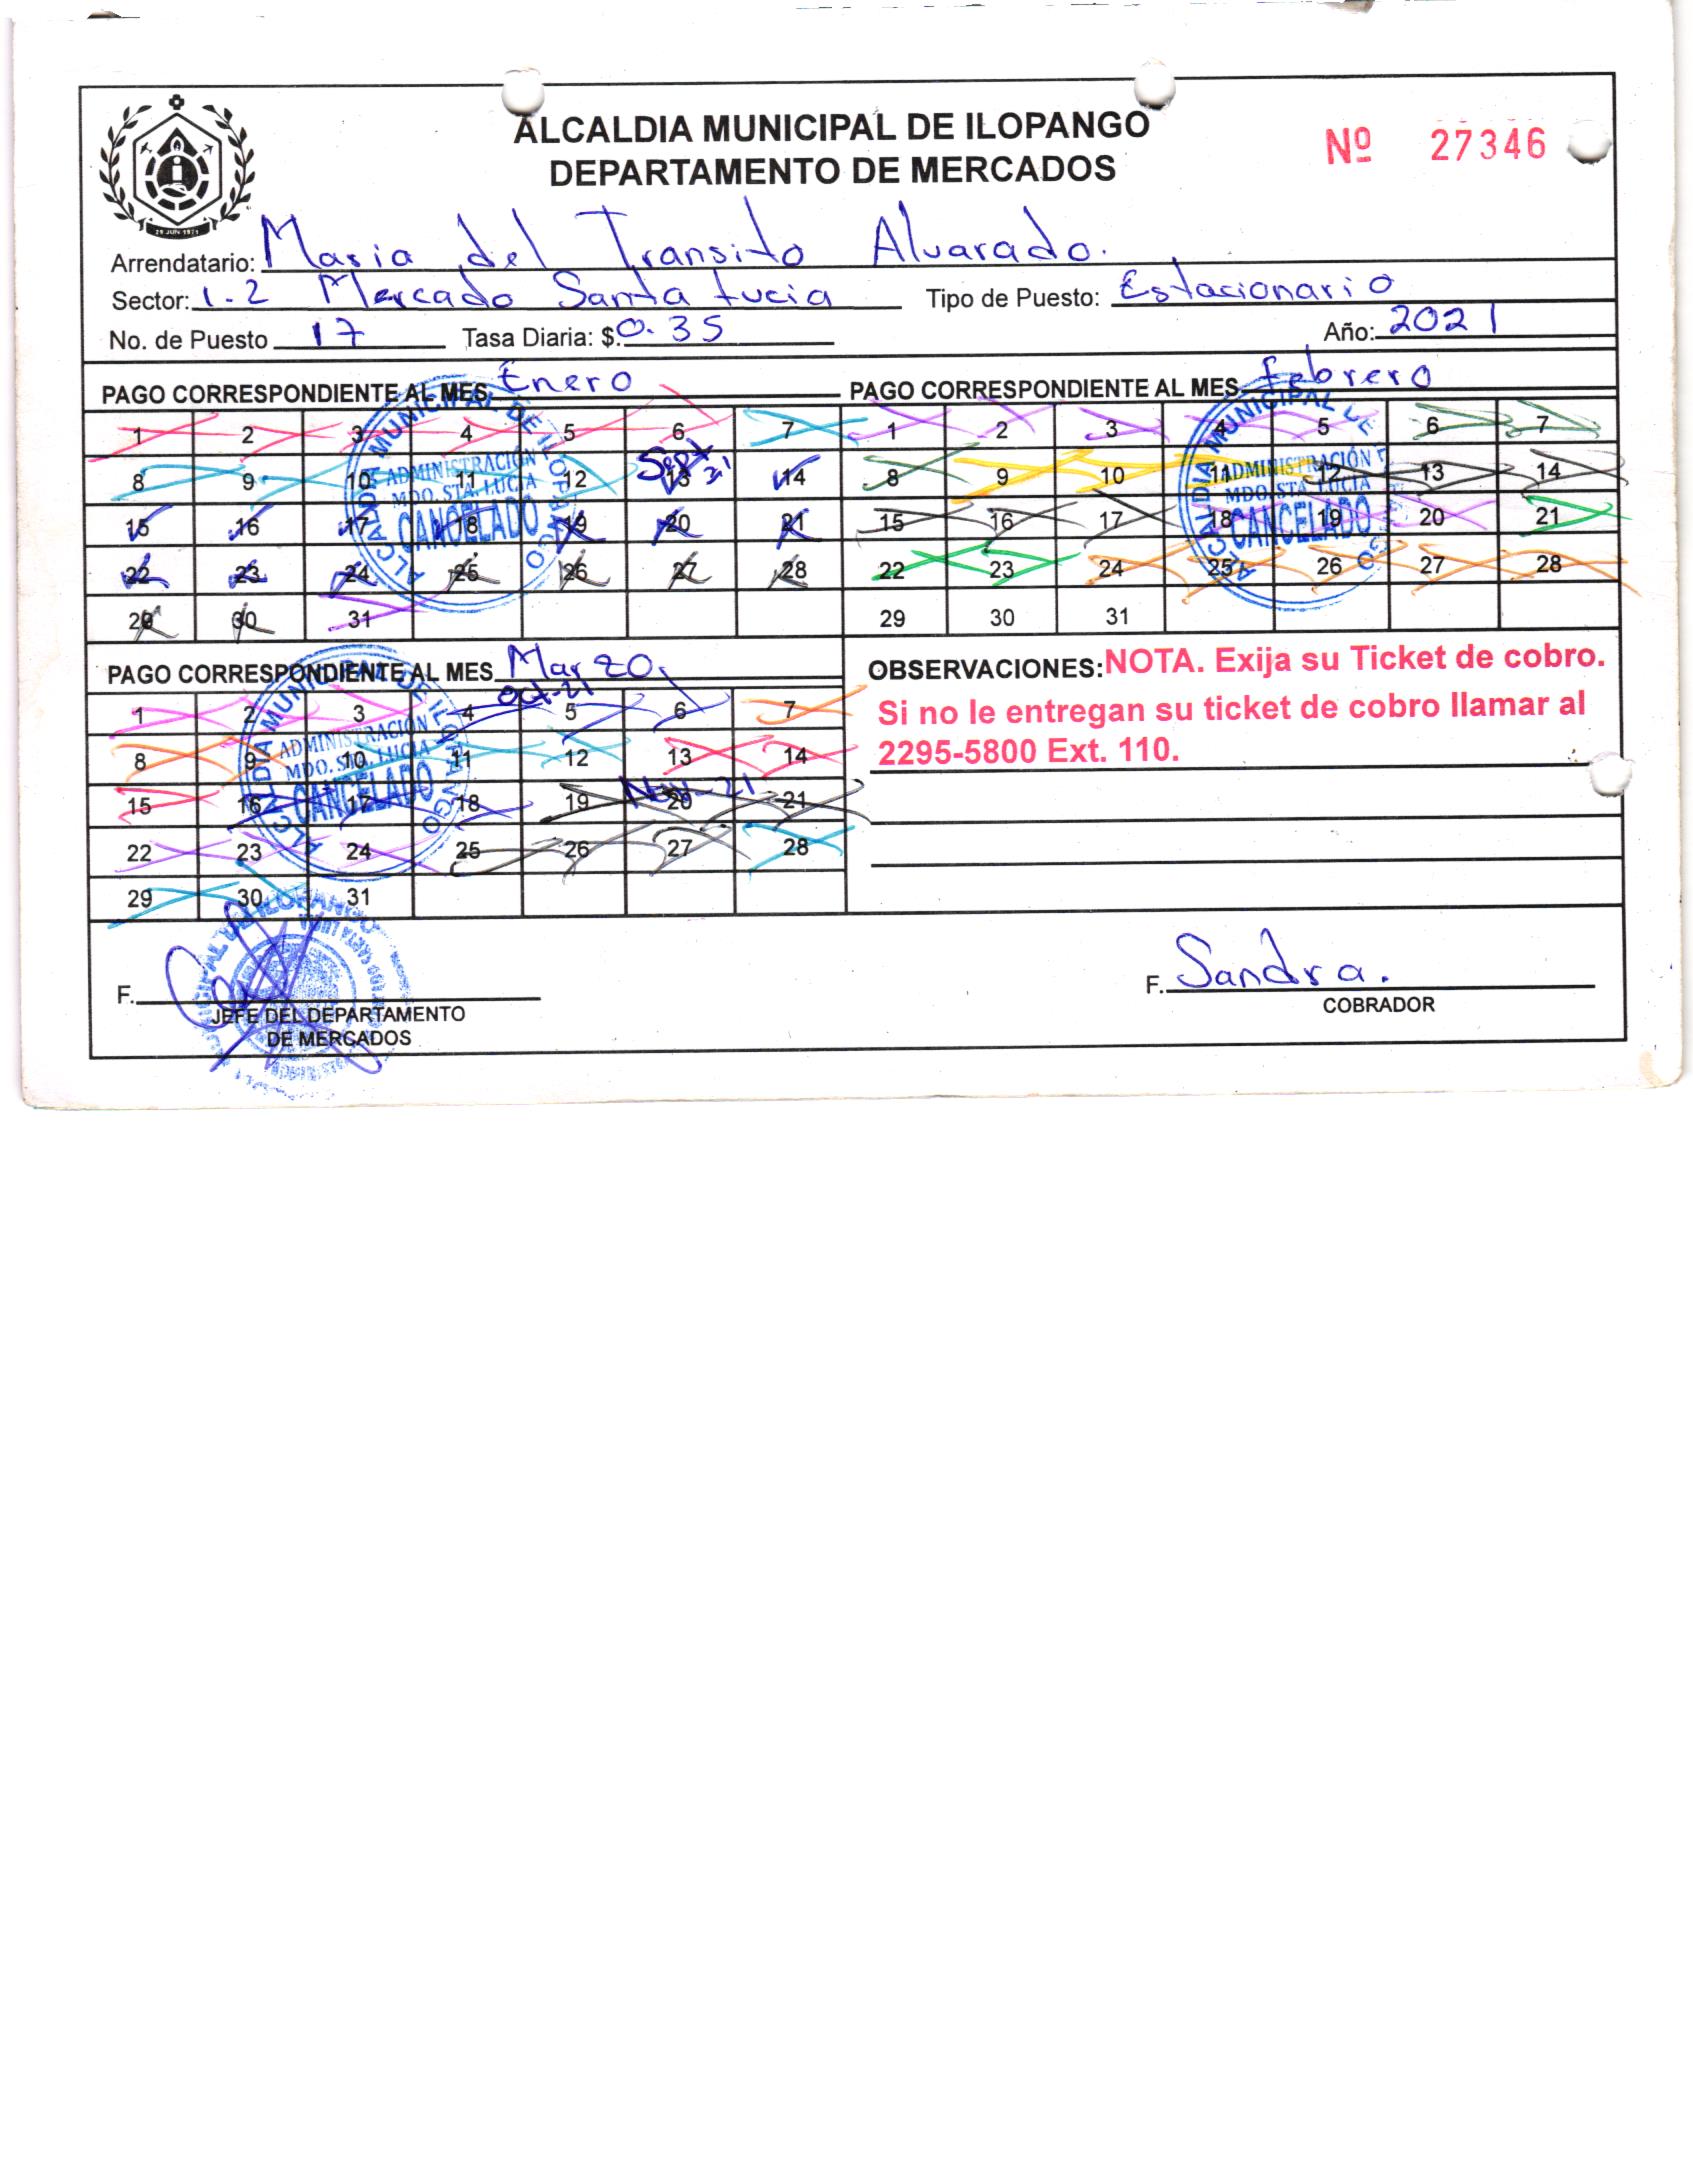 ALCALDIA MUNICIPAL DE ILOPANGO
DEPARTAMENTO DE MERCADOS
Nº 27346
29 JUN 1971
Arrendatario: Maria del Transito Alvarado.
Sector: 1-2 Mercado Santa Lucia Tipo de Puesto: Estacionario
No. de Puesto 17 Tasa Diaria: $. 0.35 Año: 2021
PAGO CORRESPONDIENTE AL MES Enero
1 2 3 4 5 6 7
8 9 10 11 12 13 14
Sept 21
15 16 17 18 19 20 21
22 23 24 25 26 27 28
29 30 31
ALCALDIA MUNICIPAL DE ILOPANGO
ADMINISTRACIÓN
MDO. STA. LUCIA
CANCELADO
PAGO CORRESPONDIENTE AL MES febrero
1 2 3 4 5 6 7
8 9 10 11 12 13 14
15 16 17 18 19 20 21
22 23 24 25 26 27 28
29 30 31
ALCALDIA MUNICIPAL DE
ADMINISTRACIÓN
MDO. STA. LUCIA
CANCELADO
PAGO CORRESPONDIENTE AL MES Marzo
oct-21
1 2 3 4 5 6 7
8 9 10 11 12 13 14
15 16 17 18 19 20 21
Nov-21
22 23 24 25 26 27 28
29 30 31
ALCALDIA MUNICIPAL DE ILOPANGO
ADMINISTRACIÓN
MDO. STA. LUCIA
CANCELADO
OBSERVACIONES: NOTA. Exija su Ticket de cobro.
Si no le entregan su ticket de cobro llamar al
2295-5800 Ext. 110.
F.
JEFE DEL DEPARTAMENTO
DE MERCADOS
F. Sandra.
COBRADOR